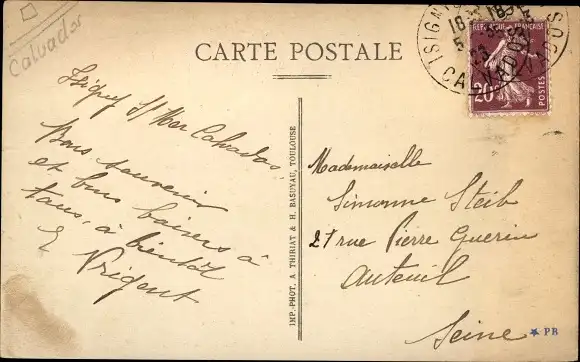 Calvados
CARTE POSTALE
Isigny s/ Mer Calvados
Bons souvenirs
et bons baisers à
tous, à bientôt
Prigent
IMP.-PHOT. A. THIRIAT & H. BASUYAU, TOULOUSE
RÉPUBLIQUE FRANÇAISE
20c
POSTES
ISIGNY
CALVADOS
Mademoiselle
Simonne Steib
21 rue Pierre Guerin
Auteuil
Seine
PR